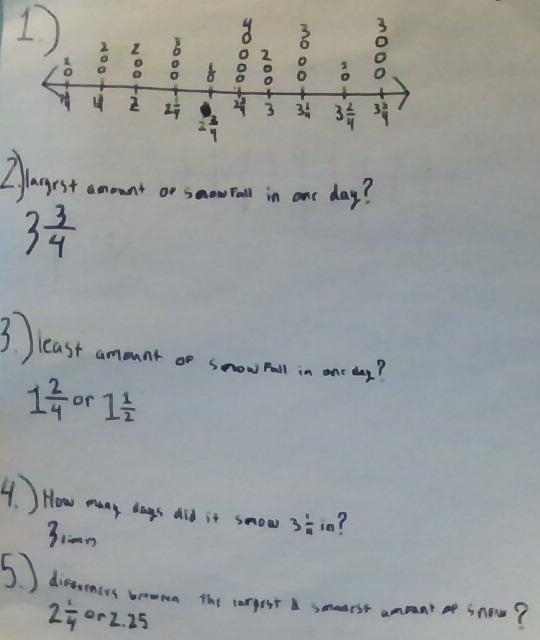 1.)
1 2 2 3 1 4 2 3 2 3
2 2 1/4 2 2/4 2 3/4 3 3 1/4 3 2/4 3 3/4
2.) largest amount of snowfall in one day?
3 3/4
3.) least amount of snowfall in one day?
1 2/4 or 1 1/2
4.) How many days did it snow 3 1/4 in?
3
5.) differences between the largest & smallest amount of snow?
2 1/4 or 2.25